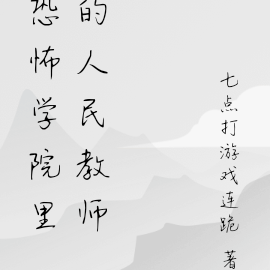 恐怖学院里
的人民教师
七点打游戏连跪 著